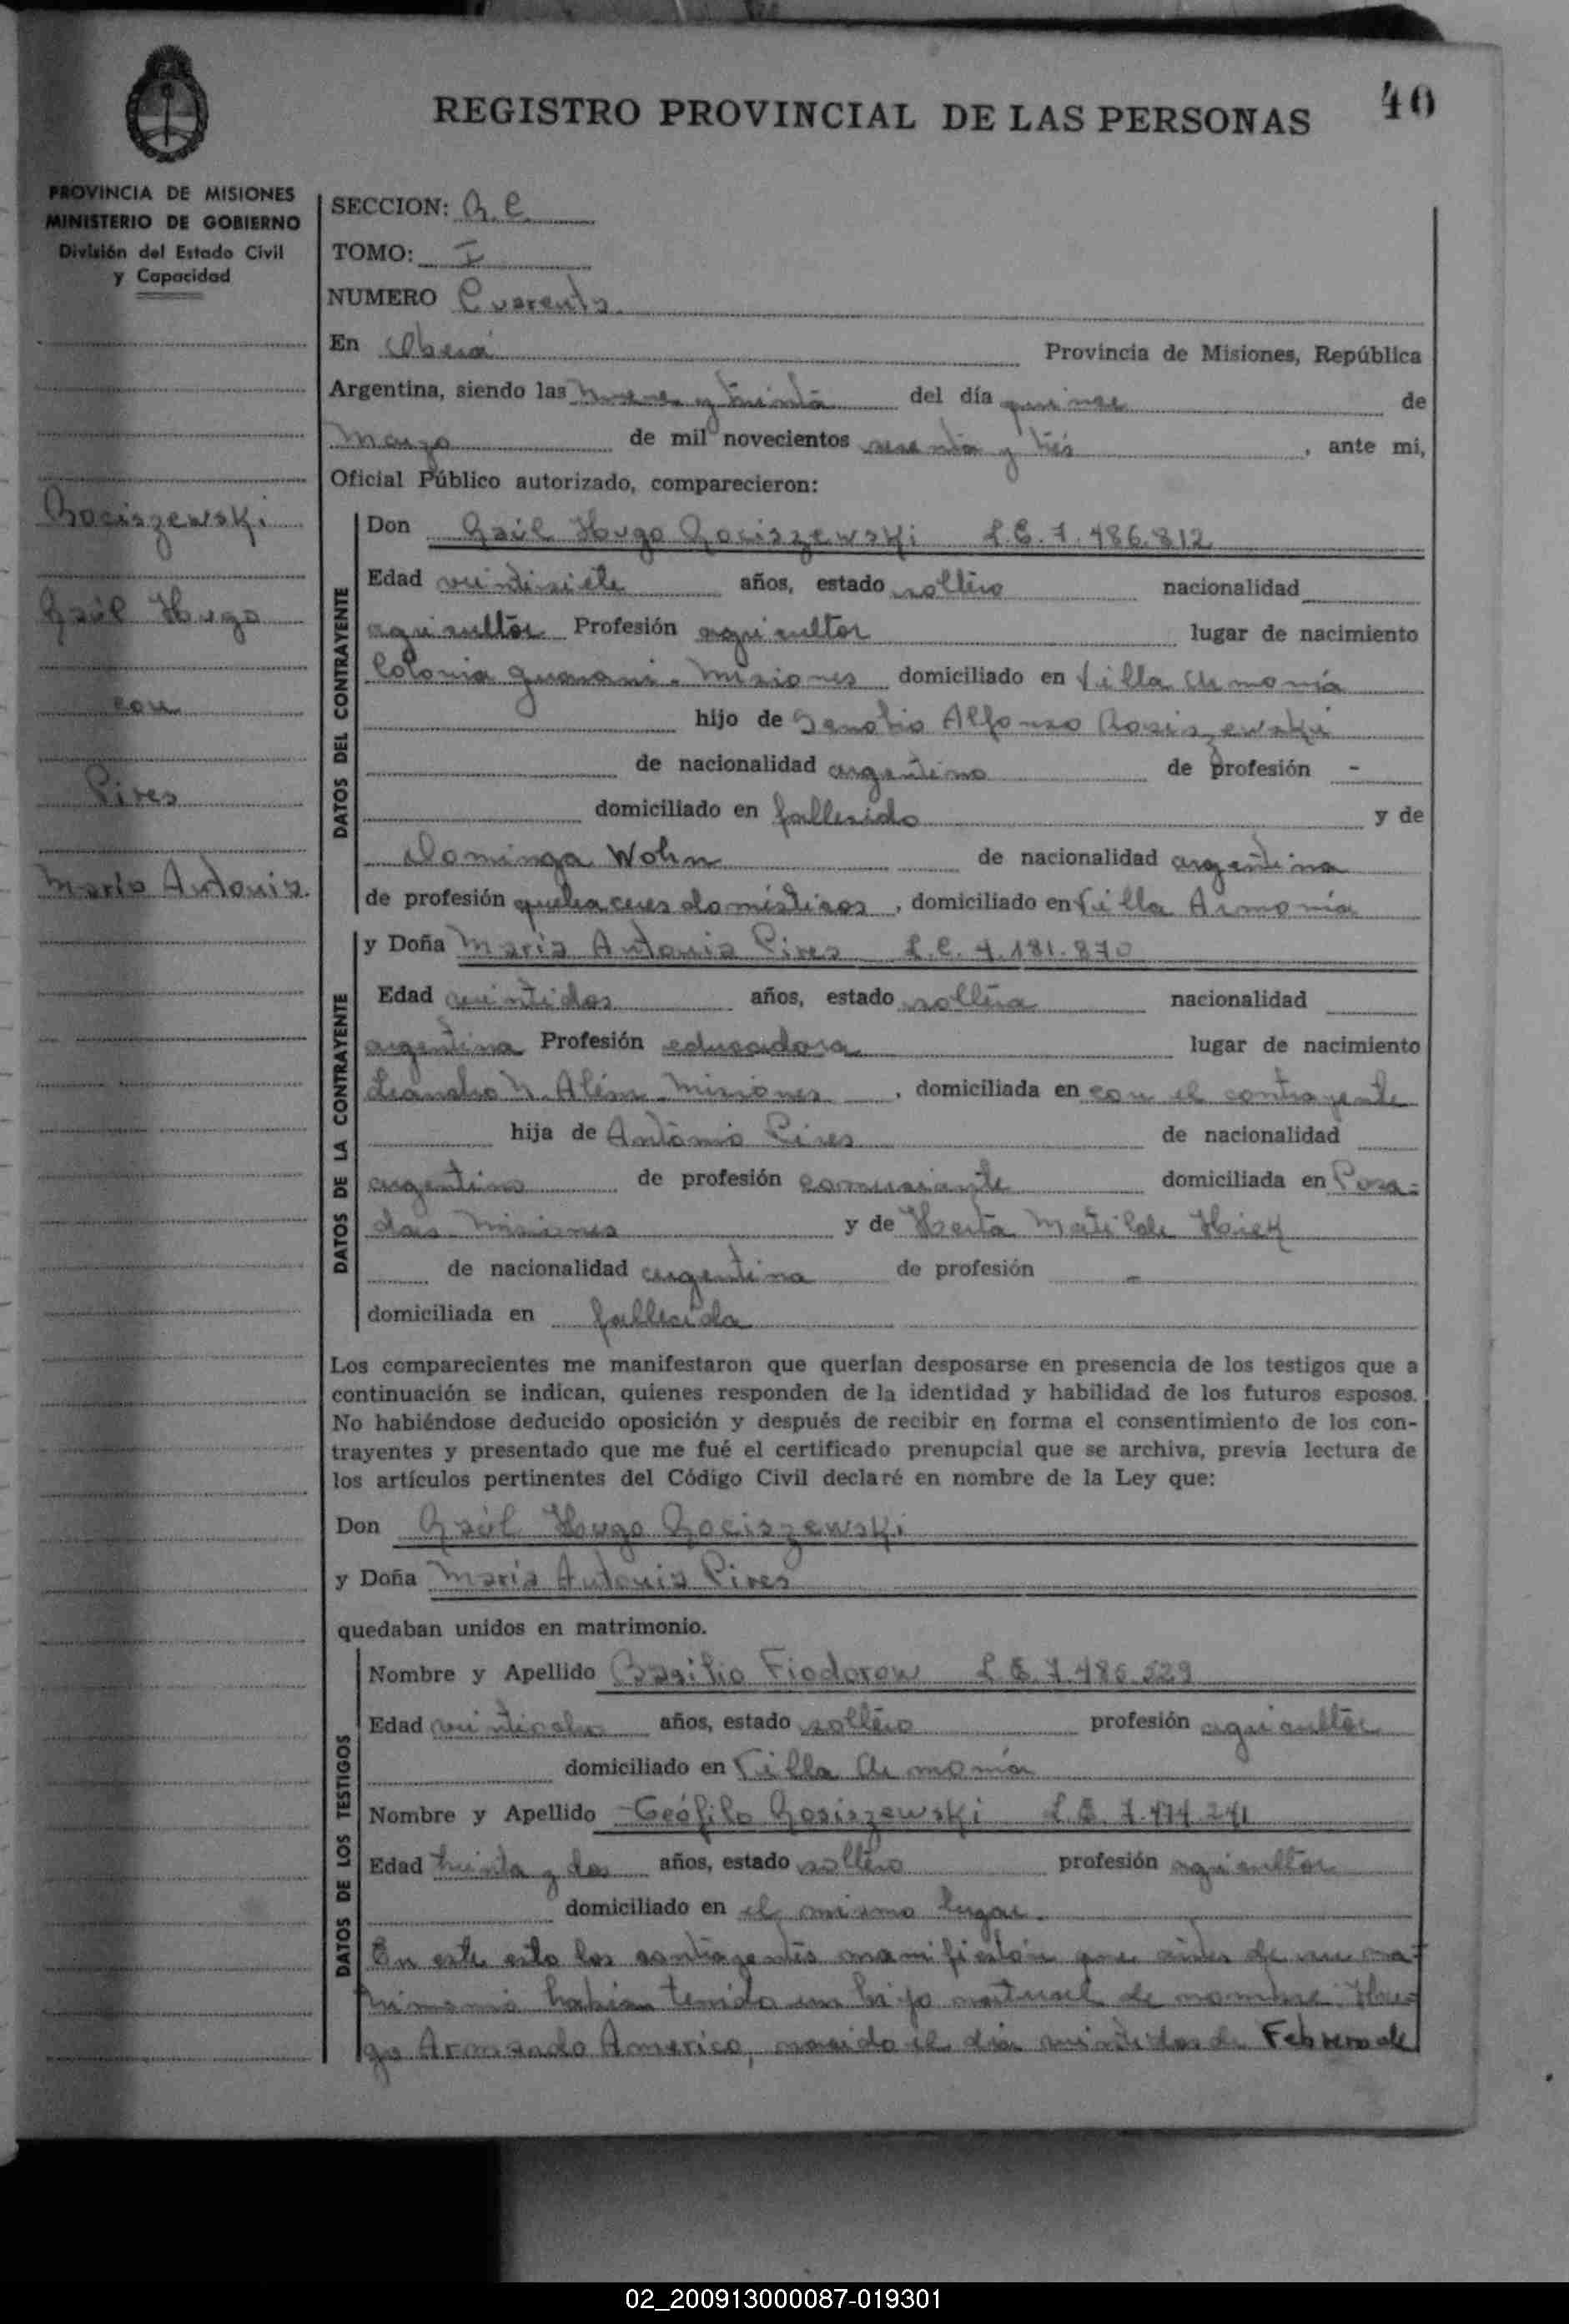 40
REGISTRO PROVINCIAL DE LAS PERSONAS
PROVINCIA DE MISIONES
MINISTERIO DE GOBIERNO
División del Estado Civil
y Capacidad
Rociszewski
Raúl Hugo
con
Pires
María Antonia.
SECCION: R. C
TOMO: I
NUMERO Cuarenta
En Oberá Provincia de Misiones, República
Argentina, siendo las nueve y treinta del día quince de
Marzo de mil novecientos sesenta y tres, ante mi,
Oficial Público autorizado, comparecieron:
DATOS DEL CONTRAYENTE
Don Raúl Hugo Rociszewski L.E. 7.486.812
Edad veintisiete años, estado soltero nacionalidad
agricultor Profesión agricultor lugar de nacimiento
Colonia guarani - Misiones domiciliado en Villa Armonía
hijo de Alfonso Rosiszewski
de nacionalidad argentino de profesión -
domiciliado en fallecido y de
Dominga Wohn de nacionalidad argentina
de profesión quehaceres domésticos, domiciliado en Villa Armonía
DATOS DE LA CONTRAYENTE
y Doña María Antonia Pires L.C. 4.181.870
Edad veintidos años, estado soltera nacionalidad
argentina Profesión educadora lugar de nacimiento
Leandro N. Além - Misiones, domiciliada en con el contrayente
hija de Antonio Pires de nacionalidad
argentino de profesión comerciante domiciliada en Posa-
das - Misiones y de Herta Matilde
de nacionalidad argentina de profesión -
domiciliada en fallecida
Los comparecientes me manifestaron que querían desposarse en presencia de los testigos que a
continuación se indican, quienes responden de la identidad y habilidad de los futuros esposos.
No habiéndose deducido oposición y después de recibir en forma el consentimiento de los con-
trayentes y presentado que me fué el certificado prenupcial que se archiva, previa lectura de
los artículos pertinentes del Código Civil declaré en nombre de la Ley que:
Don Raúl Hugo Rociszewski
y Doña María Antonia Pires
quedaban unidos en matrimonio.
DATOS DE LOS TESTIGOS
Nombre y Apellido Basilio Fiodorow L.E. 7.486.529
Edad veintiocho años, estado soltero profesión agricultor
domiciliado en Villa Armonía
Nombre y Apellido Teófilo Rosiszewski L.E. 7.474.241
Edad treinta y dos años, estado soltero profesión agricultor
domiciliado en el mismo lugar.
En este acto los contrayentes manifiestan que antes de su ma-
trimonio habian tenido un hijo natural de nombre Hu-
go Armando Americo, nacido el día veintidos de Febrero de
02_200913000087-019301